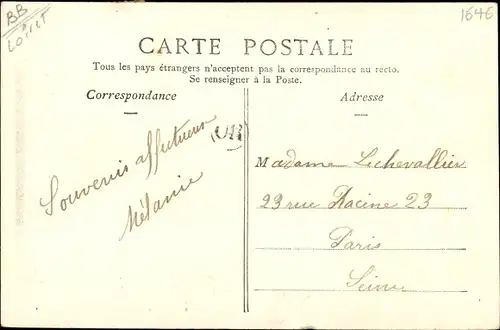 BB
LOIRET
1646
CARTE POSTALE
Tous les pays étrangers n'acceptent pas la correspondance au recto.
Se renseigner à la Poste.
Correspondance
Adresse
Souvenir affectueux
Mélanie
OR
Madame Lechevallier
23 rue Racine 23
Paris
Seine